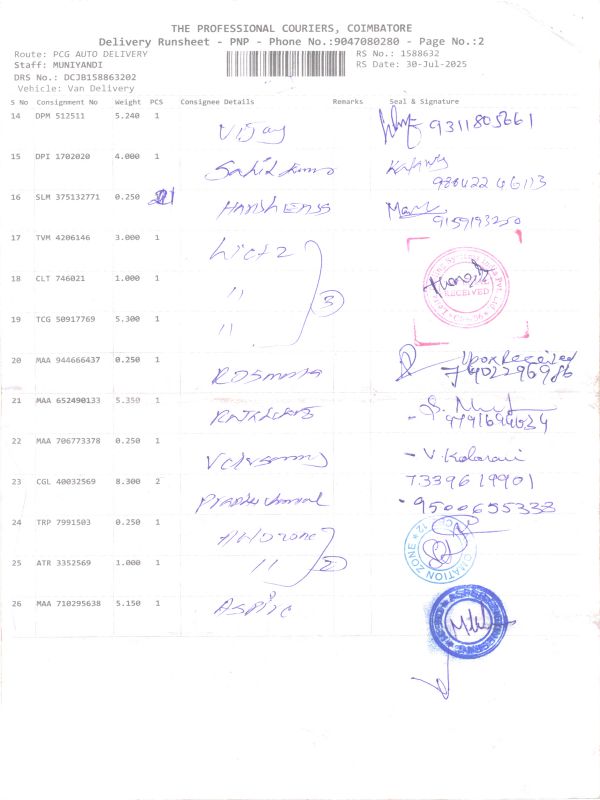 THE PROFESSIONAL COURIERS, COIMBATORE
Delivery Runsheet - PNP - Phone No.:9047080280 - Page No.:2
Route: PCG AUTO DELIVERY RS No.: 1588632
Staff: MUNIYANDI RS Date: 30-Jul-2025
DRS No.: DCJB158863202
Vehicle: Van Delivery
S No Consignment No Weight PCS Consignee Details Remarks Seal & Signature
14 DPM 512511 5.240 1 Vijay 9311805661
15 DPI 1702020 4.000 1
16 SLM 375132771 0.250 1 9159193250
17 TVM 4206146 3.000 1
18 CLT 746021 1.000 1 " 3 RECEIVED
19 TCG 50917769 5.300 1 "
20 MAA 944666437 0.250 1 Received
7402296986
21 MAA 652490133 5.350 1
9791694034
22 MAA 706773378 0.250 1 V. Kalarani
23 CGL 40032569 8.300 2 7339619901
9500655338
24 TRP 7991503 0.250 1
25 ATR 3352569 1.000 1 " 2
26 MAA 710295638 5.150 1 Aspire